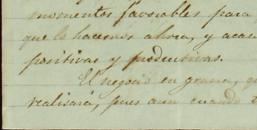 momentos favorables para
que lo hacemos ahora, y acas
positivas y productivas.
El negocio en grano, q
realisará, pues aun cuando